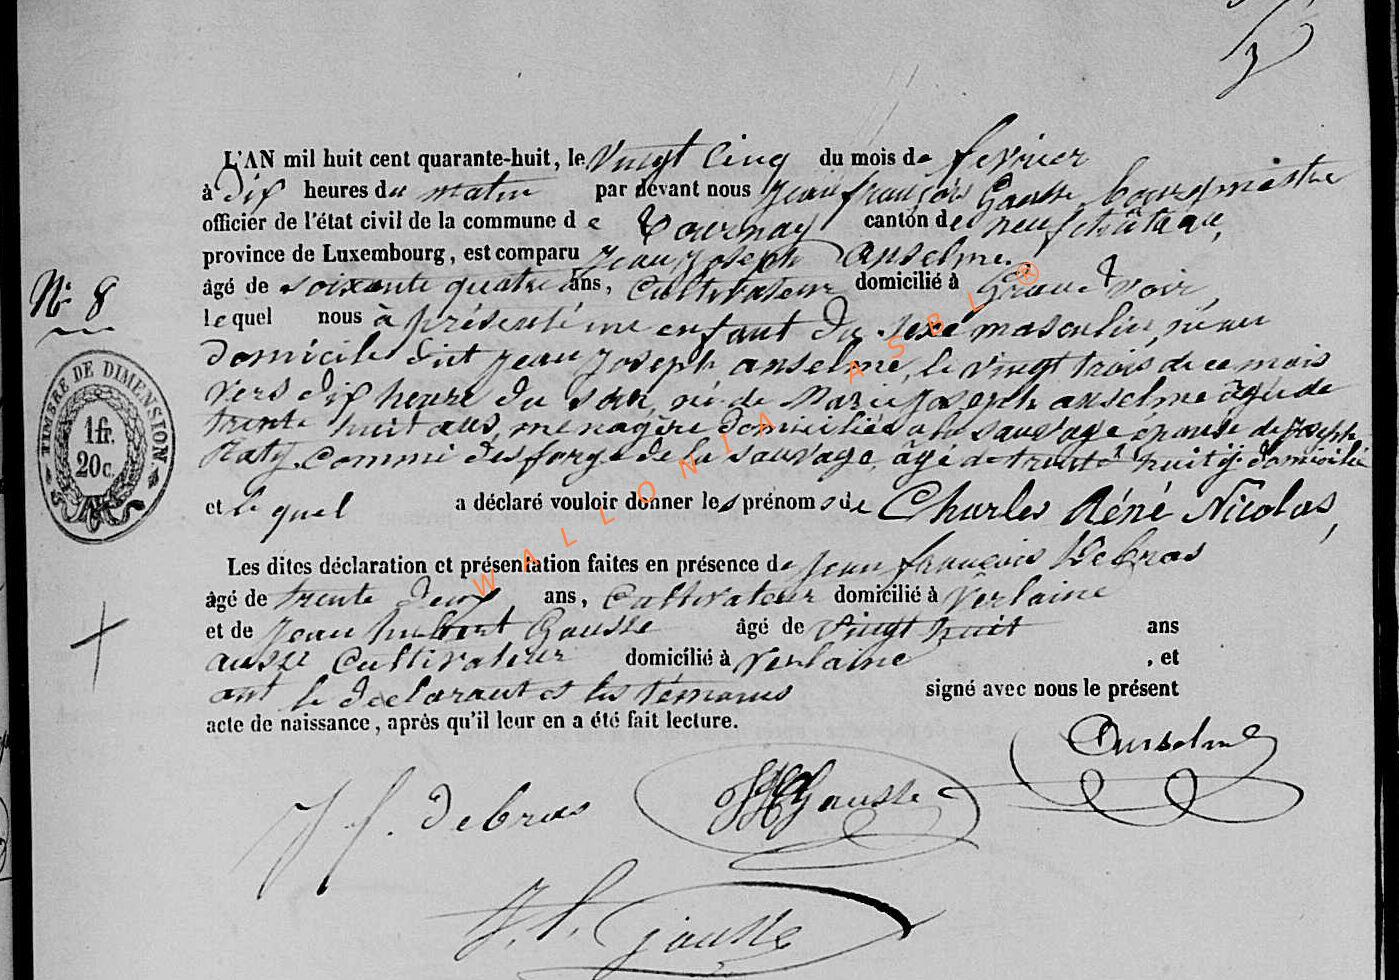 L'AN mil huit cent quarante-huit, le vingt cinq du mois de fevrier
à dix heures du matin par devant nous Jean françois Gausse bourgmestre
officier de l'état civil de la commune de Tournay canton de neufchâteau,
province de Luxembourg, est comparu Jean Joseph Anselme
âgé de soixante quatre ans, Cultivateur domicilié à Grande voir,
lequel nous à présenté un enfant du sexe masculin, né au
domicile dud Jean Joseph anselme, le vingt trois de ce mois
vers dix heure du soir, né de Marie Joseph anselme âgée de
trente huit ans, ménagère domiciliée à la sauvage, épouse de Joseph
Naty Commi des forge de la sauvage, âgé de trente huit y domicilié
et lequel a déclaré vouloir donner les prénoms de Charles Réné Nicolas,
Les dites déclaration et présentation faites en présence de Jean françois Debras
âgé de trente deux, ans, Cultivateur domicilié à Verlaine
et de Jean hubert Gausse âgé de vingt huit ans
aussi Cultivateur domicilié à Verlaine, et
ont le déclarant et les témoins signé avec nous le présent
acte de naissance, après qu'il leur en a été fait lecture.
N° 8
TIMBRE DE DIMENSION
1 fr.
20 c.
Anselme
J f. Debras
JH Gausse
J. f. Gausse
WALLONIA ASBL ®